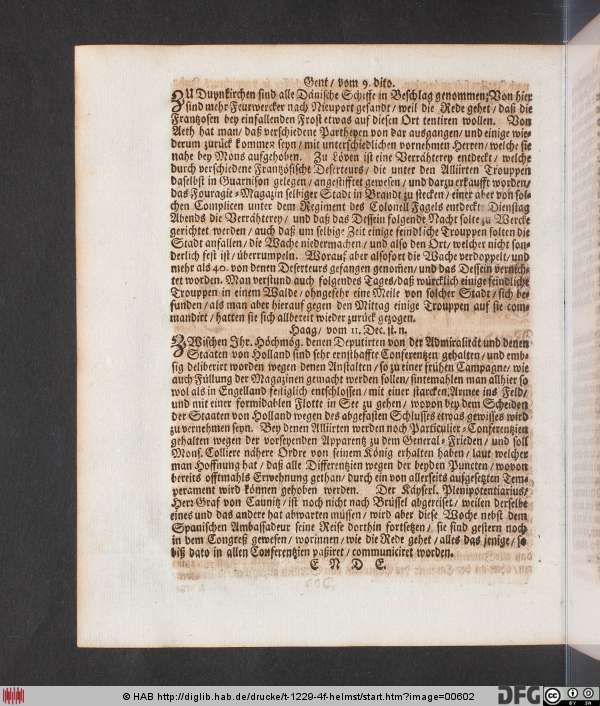 Gent / vom 9. dito.
ZU Duynkirchen sind alle Dänische Schiffe in Beschlag genommen; Von hier
sind mehr Feurwercker nach Nieuport gesandt / weil die Rede gehet / daß die
Frantzosen bey einfallenden Frost etwas auf diesen Ort tentiren wollen. Von
Aeth hat man / daß verschiedene Partheyen von dar ausgangen / und einige wie-
derum zurück kommen seyn / mit unterschiedlichen vornehmen Herren / welche sie
nahe bey Mons aufgehoben. Zu Löven ist eine Verrähterey entdeckt / welche
durch verschiedene Frantzösische Deserteurs / die unter den Alliirten Trouppen
daselbst in Guarnison gelegen / angestifftet gewesen / und darzu erkaufft worden /
das Fouragie-Magazin selbiger Stadt in Brandt zu stecken / einer aber von sol-
chen Complicen unter dem Regiment des Colonell Fagels entdeckt Dienstag
Abends die Verrähterey / und daß das Dessein folgende Nacht solte zu Wercke
gerichtet werden / auch daß um selbige Zeit einige feindliche Trouppen solten die
Stadt anfallen / die Wache niedermachen / und also den Ort / welcher nicht son-
derlich fest ist / überrumpeln. Worauf aber alsofort die Wache verdoppelt / und
mehr als 40. von denen Deserteurs gefangen genommen / und das Dessein vernich-
tet worden. Man verstund auch folgendes Tages / daß würcklich einige feindliche
Trouppen in einem Walde / ohngefehr eine Meile von solcher Stadt / sich be-
funden / als man aber hierauf gegen den Mittag einige Trouppen auf sie com-
mandirt / hatten sie sich allbereit wieder zurück gezogen.
Haag / vom 11. Dec. st. n.
ZWischen Ihr. Hochmög. denen Deputirten von der Admiralität und denen
Staaten von Holland sind sehr ernsthaffte Conferentzen gehalten / und emb-
sig deliberirt worden wegen denen Anstalten / so zu einer frühen Campagne / wie
auch Füllung der Magazinen gemacht werden sollen / sintemahlen man allhier so
wol als in Engelland festiglich entschlossen / mit einer starcken Armee ins Feld /
und mit einer formidablen Flotte in See zu gehen / wovon bey dem Scheiden
der Staaten von Holland wegen des abgefasten Schlusses etwas gewisses wird
zu vernehmen seyn. Bey denen Alliirten werden noch Particulier-Conferentzien
gehalten wegen der vorseyenden Apparentz zu dem General-Frieden / und soll
Mons. Colliere nähere Ordre von seinem König erhalten haben / laut welcher
man Hoffnung hat / daß alle Differentzien wegen der beyden Puncten / wovon
bereits offtmahls Erwehnung gethan / durch ein von allerseits aufgesetzten Tem-
perament wird können gehoben werden. Der Käyserl. Plenipotentiarius /
Herr Graf von Caunitz / ist noch nicht nach Brüssel abgereiset / weilen derselbe
eines und das andere hat abwarten müssen / wird aber diese Woche nebst dem
Spanischen Ambassadeur seine Reise dorthin fortsetzen / sie sind gestern noch
in dem Congreß gewesen / worinnen / wie die Rede gehet / alles das jenige / so
biß dato in allen Conferentzien paßiret / communiciret worden.
E N D E.
© HAB http://diglib.hab.de/drucke/t-1229-4f-helmst/start.htm?image=00602
DFG
CC BY SA